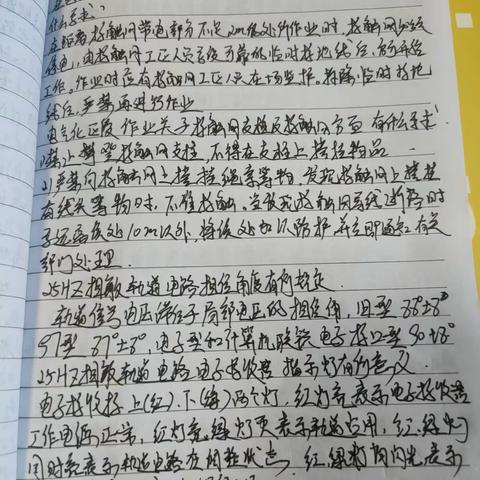 什么要求?
在距离接触网带电部分不足2m处所作业时,接触网必须
停电,由接触网工区人员安设可靠的临时接地线后,方可开始
工作。作业时应有接触网工区人员在场监护。拆除临时接地
线后,严禁再进行作业
电气化区段作业关于接触网支柱及接触网方面有什么要求
1)禁止攀登接触网支柱,不得在支柱上搭挂物品
2)严禁向接触网上搭挂绳索等物,发现接触网上搭挂
有线头等物时,不准接触。当发现接触网导线断落时
要远离该处10m以外,将该处加以防护,并立即通知有关
部门处理.
25HZ相敏轨道电路相位角度有何规定
轨道信号电压滞后于局部电压的相位角,旧型 88°±8°
97型 87°±8° 电子型和计算机联锁电子接口型 90±8°
25HZ相敏轨道电路电子接收器 指示灯有何意义
电子接收器上(红)、下(绿)两个灯,红灯亮,表示电子接收器
工作电源正常,红灯亮,绿灯灭表示轨道占用,红、绿灯
同时亮表示轨道电路在调整状态,红、绿灯闪光表示